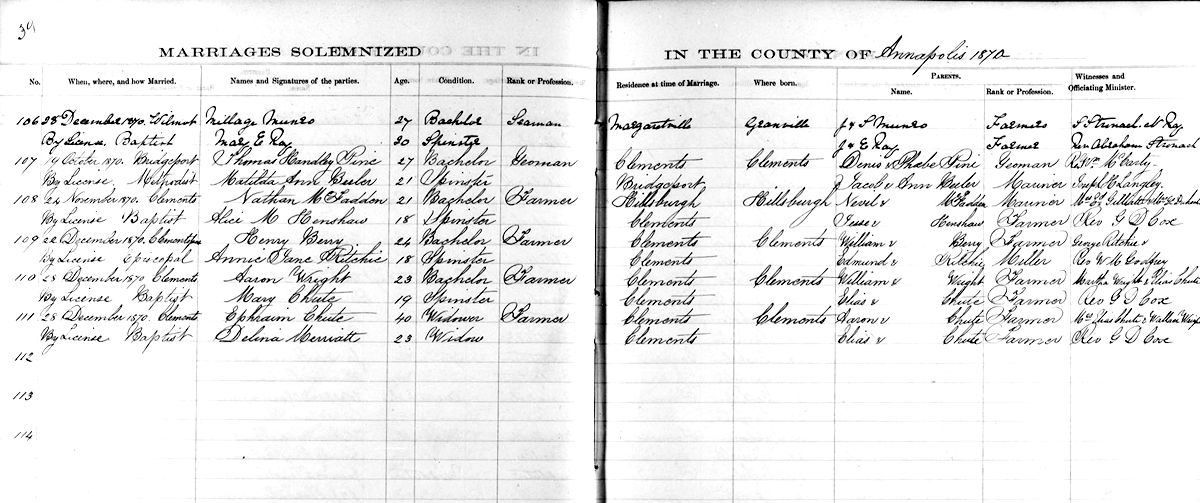 MARRIAGES SOLEMNIZED IN THE COUNTY OF Annapolis 1870
No. When, where, and how Married. Names and Signatures of the parties. Age. Condition. Rank or Profession. Residence at time of Marriage. Where born. PARENTS. Name. Rank or Profession. Witnesses and Officiating Minister.
106 28 December 1870. Wilmot Millage Munro 27 Bachelor Seaman Margaretville Granville J & S Munro Farmers S Stronach
By License. Baptist Mary E Ray 30 Spinster J & E Ray Farmer Rev Abraham Stronach
107 19 October 1870. Bridgeport Thomas Handley Pine 27 Bachelor Yeoman Clements Clements Denis & Phebe Pine Yeoman Rev Wm McCarty.
By License Methodist Matilda Ann Beeler 21 Spinster Bridgeport Jacob & Ann Beeler Mariner Joseph H Langley.
108 24 November 1870. Clements Nathan McFadden 21 Bachelor Farmer Hillsburgh Hillsburgh Nevil & McFadden Mariner
By License Baptist Alici M Henshaw 18 Spinster Clements Jesse & Henshaw Farmer Rev G D Cox
109 22 December 1870. Henry Berry 24 Bachelor Farmer Clements Clements William & Berry Farmer George Ritchie &
By License Episcopal Annie Jane Ritchie 18 Spinster Clements Edmund & Ritchie Miller Rev W M Godfrey
110 28 December 1870 Clements. Aaron Wright 23 Bachelor Farmer Clements Clements William & Wright Farmer Martha Wright & Elias Chute
By License Baptist Mary Chute 19 Spinster Clements Elias & Chute Farmer Rev G D Cox
111 28 December 1870. Clements Ephraim Chute 40 Widower Farmer Clements Clements Aaron & Chute Farmer Chute & Wallace Wright
By License Baptist Delina Merriatt 23 Widow Clements Elias & Chute Farmer Rev G D Cox
112
113
114